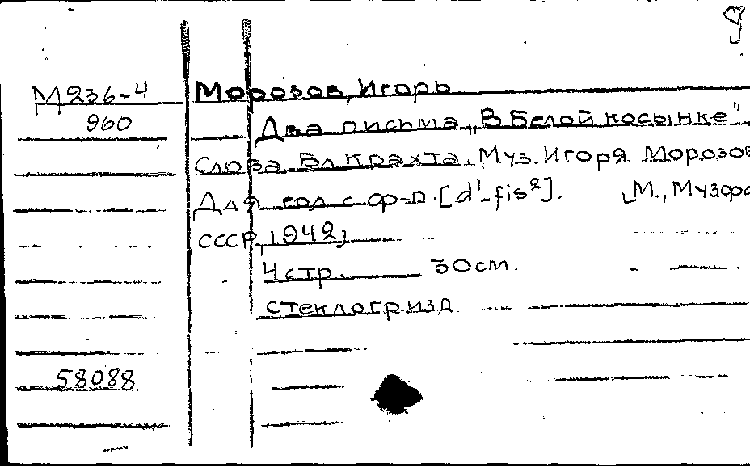 9
М236-4 Морозов, Игорь
960 Два письма „В белой косынке"
слова Вл. Крахта. Муз. Игоря Морозов
Для гол. с ф-п. [d¹-fis²]. М., Музфо
СССР, 1942,
4 стр. 30 см.
стеклогр. изд.
58088